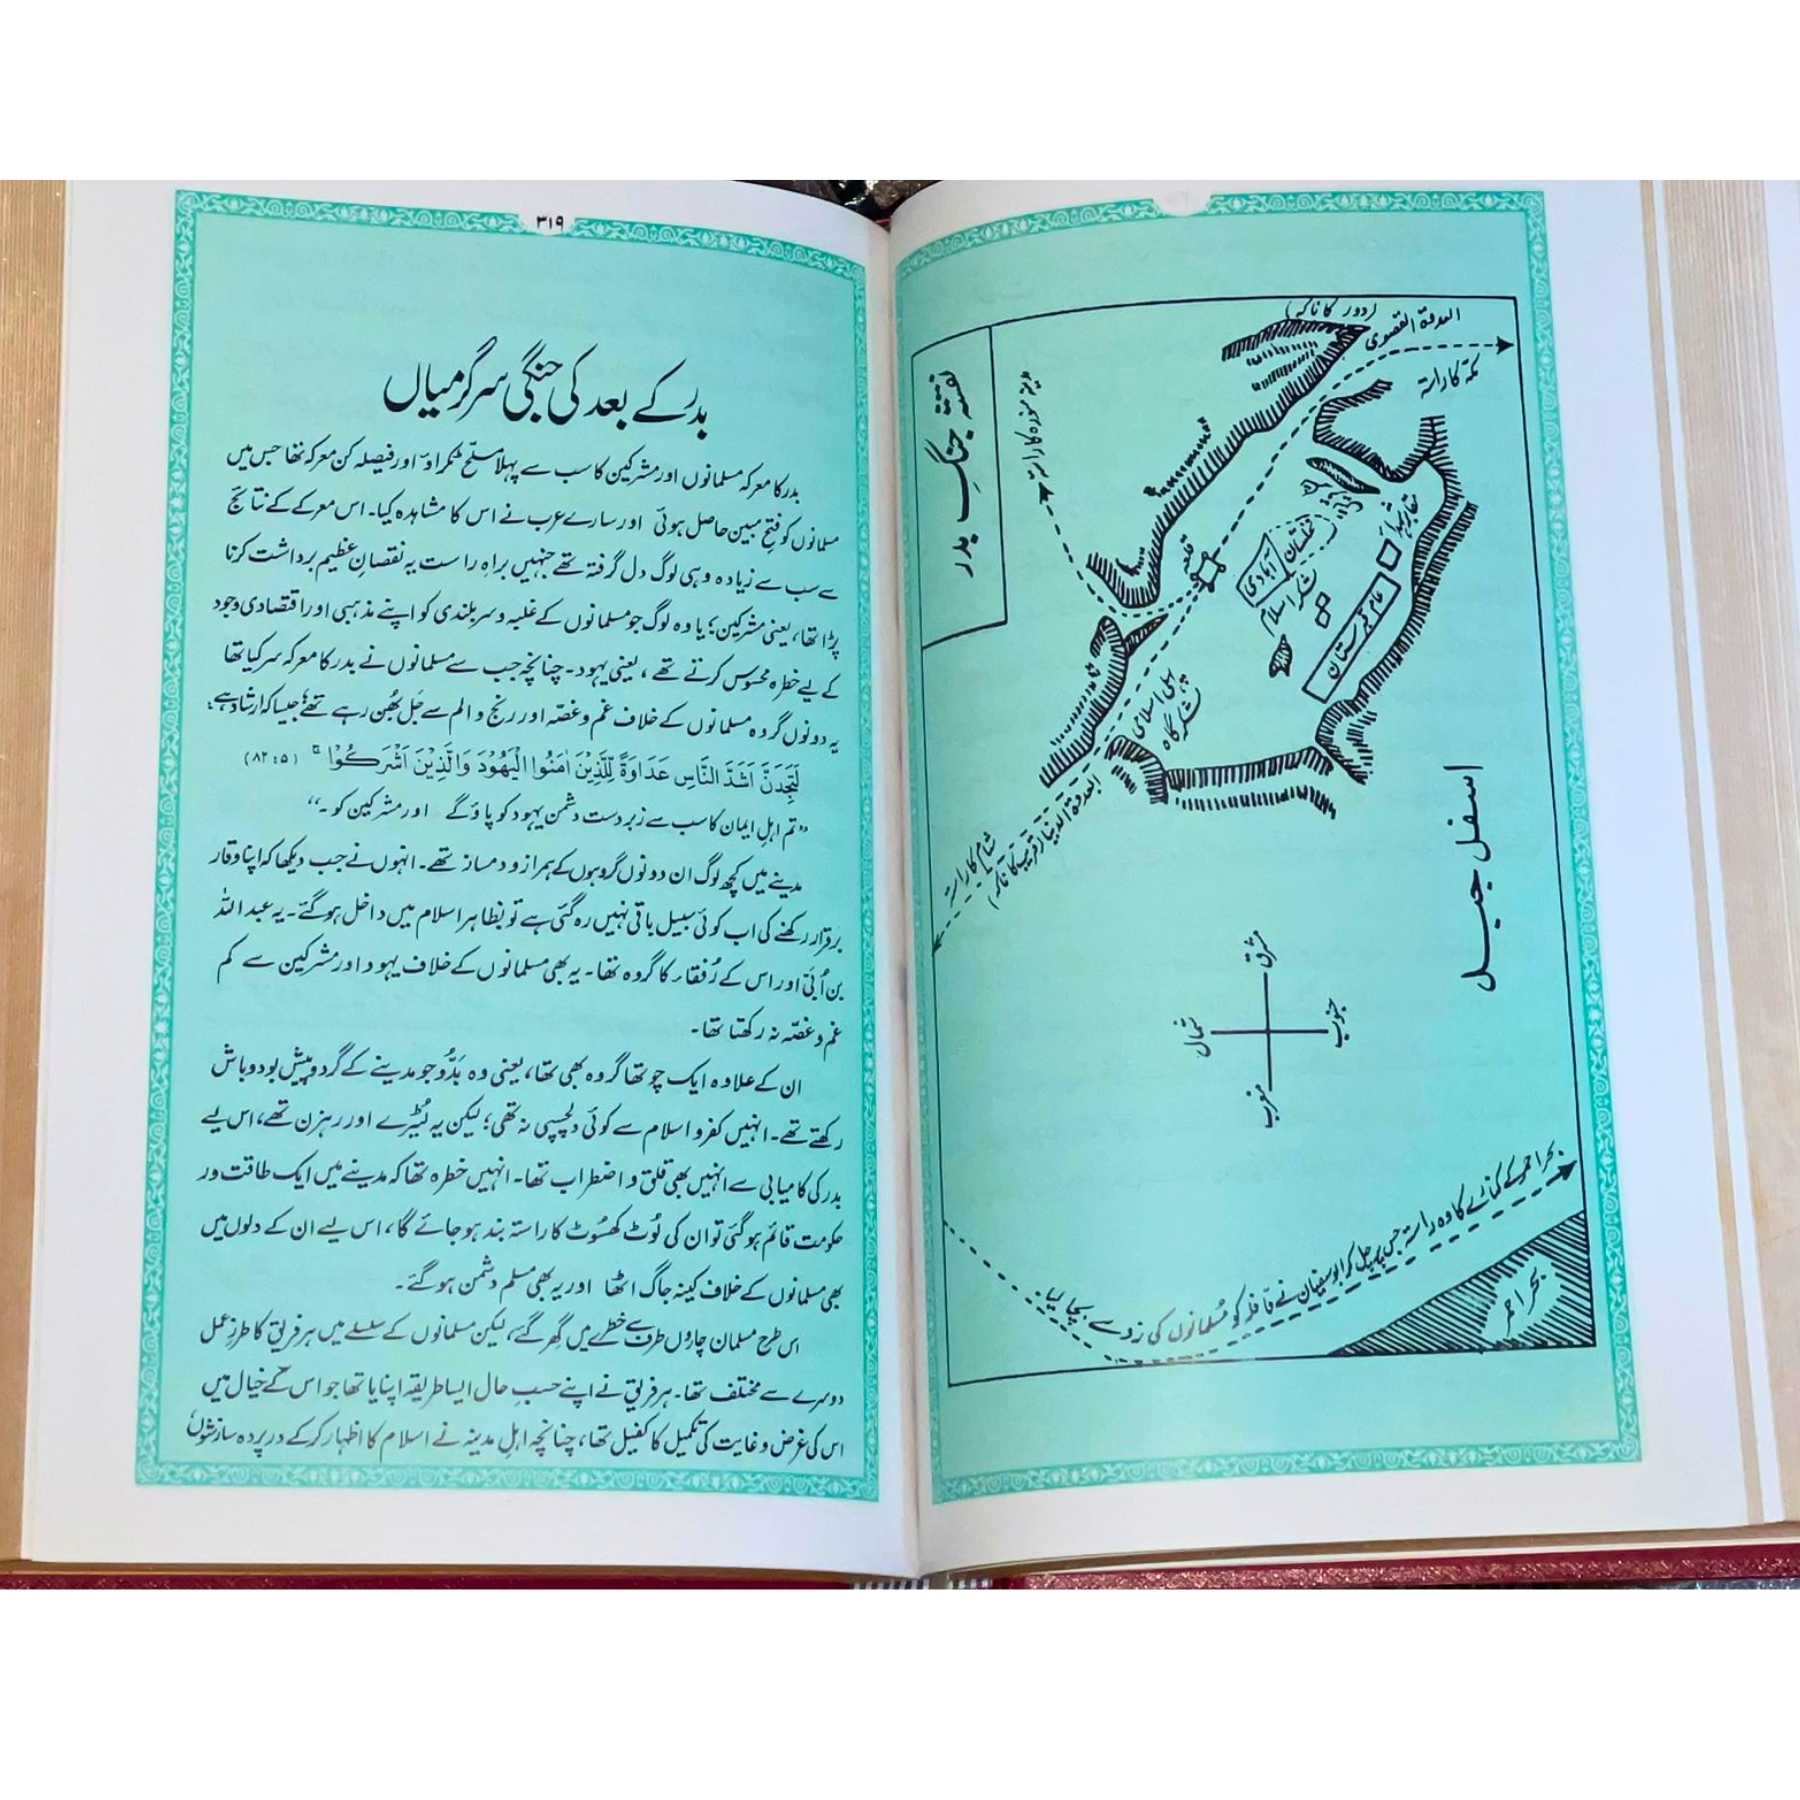 نقشہ جنگِ بدر
العدوۃ القصویٰ
(دور کا ناکہ)
مکہ کا راستہ
مدینہ منورہ کا راستہ
قلعہ
نخلستان
آبادی
لشکر اسلام
مقابر شہداء
عام قبرستان
پہلی اسلامی
لشکر گاہ
العدوۃ الدنیا (قریب کا ناکہ)
شام کا راستہ
اسفل جبل
مشرق
شمال
جنوب
مغرب
بحر احمر کے کنارے کا وہ راستہ جس پر چل کر ابو سفیان نے قافلہ کو مُسلمانوں کی زد سے بچا لیا۔
بحر احمر
۳۱۹
بدر کے بعد کی جنگی سرگرمیاں
بدر کا معرکہ مسلمانوں اور مشرکین کا سب سے پہلا مسلح ٹکراؤ اور فیصلہ کن معرکہ تھا جس میں
مسلمانوں کو فتح مبین حاصل ہوئی اور سارے عرب نے اس کا مشاہدہ کیا۔ اس معرکے کے نتائج
سے سب سے زیادہ وہی لوگ دل گرفتہ تھے جنہیں براہِ راست یہ نقصانِ عظیم برداشت کرنا
پڑا تھا، یعنی مشرکین؛ یا وہ لوگ جو مسلمانوں کے غلبہ و سربلندی کو اپنے مذہبی اور اقتصادی وجود
کے لیے خطرہ محسوس کرتے تھے، یعنی یہود۔ چنانچہ جب سے مسلمانوں نے بدر کا معرکہ سر کیا تھا
یہ دونوں گروہ مسلمانوں کے خلاف غم و غصّہ اور رنج و الم سے جَل بھُن رہے تھے؛ جیسا کہ ارشاد ہے:
لَتَجِدَنَّ اَشَدَّ النَّاسِ عَدَاوَةً لِّلَّذِيْنَ اٰمَنُوا الْيَهُوْدَ وَالَّذِيْنَ اَشْرَكُوْا ۚ (۵ : ۸۲)
”تم اہلِ ایمان کا سب سے زبردست دشمن یہود کو پاؤ گے اور مشرکین کو۔“
مدینے میں کچھ لوگ ان دونوں گروہوں کے ہمراز و دمساز تھے۔ انہوں نے جب دیکھا کہ اپنا وقار
برقرار رکھنے کی اب کوئی سبیل باقی نہیں رہ گئی ہے تو بظاہر اسلام میں داخل ہو گئے۔ یہ عبد اللہ
بن اُبَیّ اور اس کے رُفقاء کا گروہ تھا۔ یہ بھی مسلمانوں کے خلاف یہود اور مشرکین سے کم
غم و غصّہ نہ رکھتا تھا۔
ان کے علاوہ ایک چوتھا گروہ بھی تھا، یعنی وہ بَدُّو جو مدینے کے گرد و پیش بود و باش
رکھتے تھے۔ انہیں کفر و اسلام سے کوئی دلچسپی نہ تھی؛ لیکن یہ لُٹیرے اور رہزن تھے، اس لیے
بدر کی کامیابی سے انہیں بھی قلق و اضطراب تھا۔ انہیں خطرہ تھا کہ مدینے میں ایک طاقت ور
حکومت قائم ہو گئی تو ان کی لُوٹ کھسُوٹ کا راستہ بند ہو جائے گا، اس لیے ان کے دلوں میں
بھی مسلمانوں کے خلاف کینہ جاگ اٹھا اور یہ بھی مسلم دشمن ہو گئے۔
اس طرح مسلمان چاروں طرف سے خطرے میں گھِر گئے، لیکن مسلمانوں کے سلسلے میں ہر فریق کا طرزِ عمل
دوسرے سے مختلف تھا۔ ہر فریق نے اپنے حسبِ حال ایسا طریقہ اپنایا تھا جو اس کے خیال میں
اس کی غرض و غایت کی تکمیل کا کفیل تھا، چنانچہ اہلِ مدینہ نے اسلام کا اظہار کرکے درپردہ سازشوں،